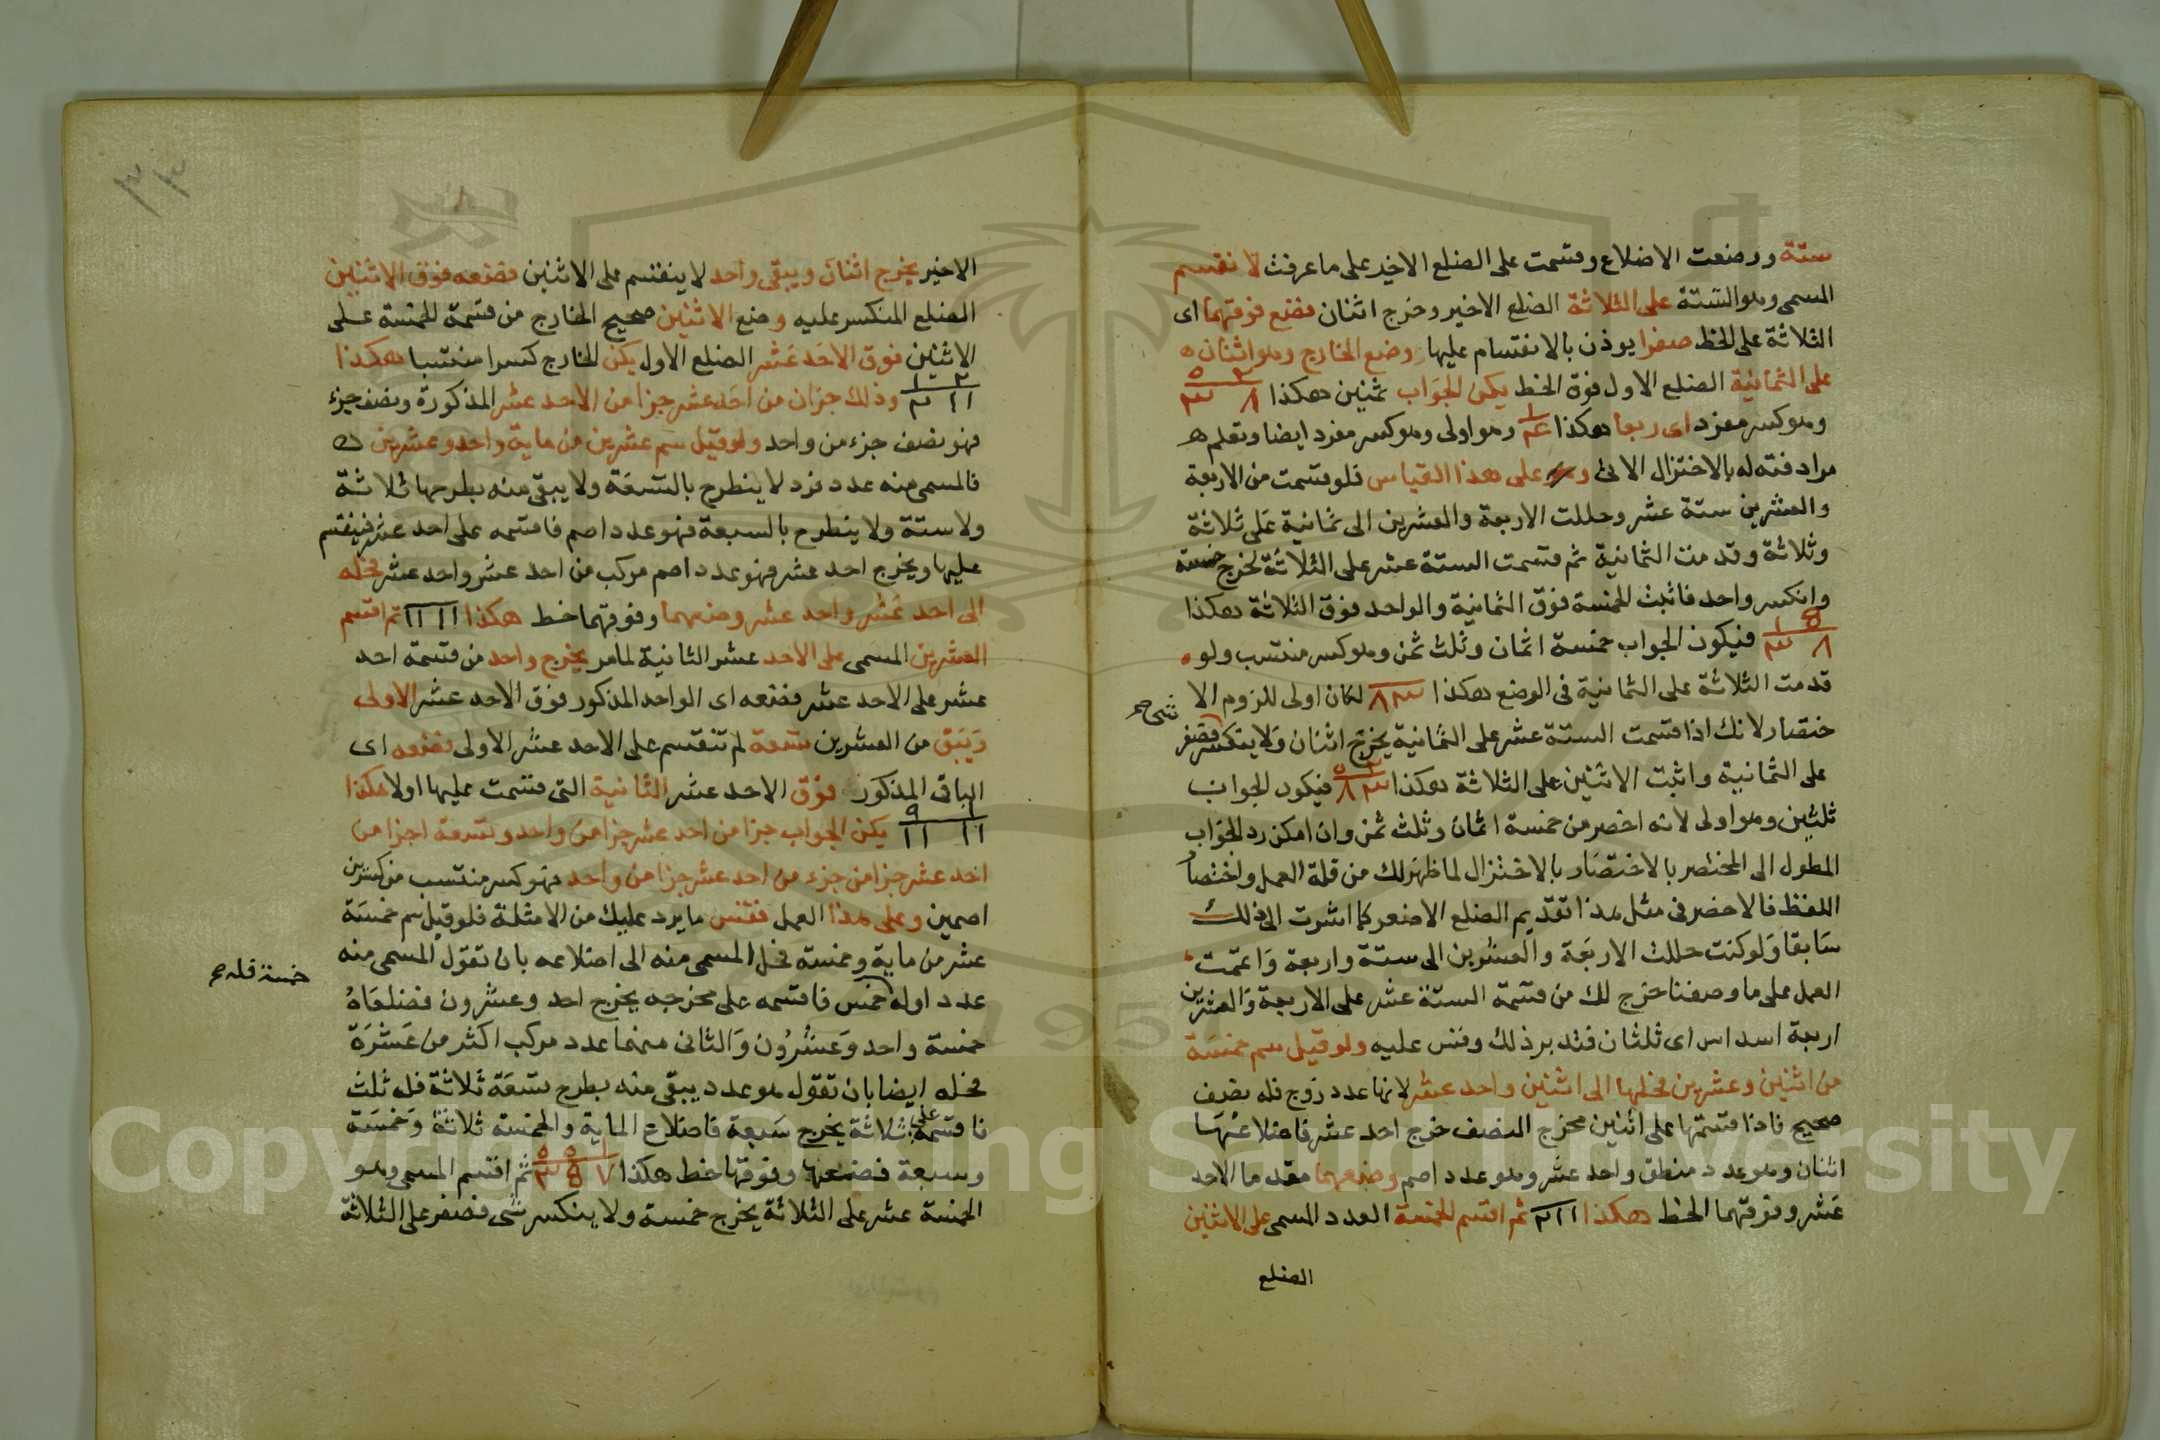 ستة ووضعت الاضلاع وقسمت على الضلع الاخير على ما عرفت لانقسم
المسمى وهو الستة على الثلاثة الضلع الاخير وخرج اثنان فضع فوقهما اى
الثلاثة على الخط صفرا يوذن بالانقسام عليها وضع الخارج وهو اثنان ه
على الثمانية الضلع الاول فوق الخط يكن الجواب ثمنين هكذا ٢ ٥ ٨ ٣
وهو كسر مفرد اى ربعا هكذا ١ ٤ وهو اولى وهو كسر مفرد ايضا وتعلم ه
مرادفته له بالاختزال الاتى وعلى هذا القياس فلو قسمت من الاربعة
والعشرين ستة عشر وحللت الاربعة والعشرين الى ثمانية على ثلاثة
وثلاثة وقدمت الثمانية ثم قسمت الستة عشر على الثلاثة لخرج خمسة
وانكسر واحد فاثبت الخمسة فوق الثمانية والواحد فوق الثلاثة هكذا
٥ ١ ٨ ٣ فيكون الجواب خمسة اثمان وثلث ثمن وهو كسر منتسب ولو ه
قدمت الثلاثة على الثمانية فى الوضع هكذا ٣ ٨ لكان اولى للزوم الا
شى صح
ختصار لانك اذا قسمت الستة عشر على الثمانية يخرج اثنان ولا ينكسر فصفر
على الثمانية واثبت الاثنين على الثلاثة هكذا ٢ ٥ ٣ ٨ فيكون الجواب
ثلثين وهو اولى لانه اخصر من خمسة اثمان وثلث ثمن وان امكن رد الجواب
المطول الى المختصر بالاختصار بالاختزال لما ظهر لك من قلة العمل واختصار
اللفظ فالاحضر فى مثل هذا تقديم الضلع الاصغر كما اشرت الى ذلك
سابقا ولو كنت حللت الاربعة والعشرين الى ستة واربعة واعممت
العمل على ما وصفنا خرج لك من قسمة الستة عشر على الاربعة والعشرين
اربعة اسداس اى ثلثان فتدبر ذلك وقس عليه ولو قيل سم خمسة
من اثنين وعشرين فحلها الى اثنين واحد عشر لانها عدد زوج فله نصف
صحيح فاذا قسمتها على اثنين مخرج النصف خرج احد عشر فاضلاعها
اثنان وهو عدد منطق واحد عشر وهو عدد اصم وضعهما مقدما الاحد
عشر وفوقهما الخط هكذا ١١ ٢ ثم اقسم الخمسة العدد المسمى على الاثنين
الضلع
الاخير يخرج اثنان ويبقى واحد لا ينقسم على الاثنين فضعه فوق الاثنين
الضلع المنكسر عليه وضع الاثنين صحيح الخارج من قسمة الخمسة على
الاثنين فوق الاحد عشر الضلع الاول يكن الخارج كسرا منتسبا هكذا
٢ ١ ١١ ٢ وذلك جزان من احد عشر جزا من الاحد عشر المذكورة ونصف جزء
فهو نصف جزء من واحد ولو قيل سم عشرين من ماية واحد وعشرين
فالمسمى منه عدد فرد لا ينطرح بالتسعة ولا يبقى منه بطرحها ثلاثة
ولا ستة ولا ينطرح بالسبعة فهو عدد اصم فاقسمه على احد عشر فينقسم
عليها ويخرج احد عشر فهو عدد اصم مركب من احد عشر واحد عشر فحله
الى احد عشر واحد عشر وضعهما وفوقهما خط هكذا ١١ ١١ ثم اقسم
العشرين المسمى على الاحد عشر الثانية لما مر يخرج واحد من قسمة احد
عشر على الاحد عشر فضعه اى الواحد المذكور فوق الاحد عشر الاولى
ويبق من العشرين تسعة لم تنقسم على الاحد عشر الاولى فضعه اى
الباقى المذكور فوق الاحد عشر الثانية التى قسمت عليها اولا هكذا
١ ٩ ١١ ١١ يكن الجواب جزا من احد عشر جزا من واحد وتسعة اجزا من
احد عشر جزا من جزء من احد عشر جزا من واحد فهو كسر منتسب من كسرين
اصمين وعلى هذا العمل فقس ما يرد عليك من الامثلة فلو قيل سم خمسة
عشر من ماية وخمسة فحل المسمى منه الى اضلاعه بان تقول المسمى منه
خمسة فله صح
عدد اوله خمس فاقسمه على مخرجه يخرج احد وعشرون فضلعاه
خمسة واحد وعشرون والثانى منهما عدد مركب اكثر من عشرة
فحله ايضا بان تقول هو عدد يبقى منه بطرح تسعة ثلاثة فله ثلث
فاقسمه على ثلاثة يخرج سبعة فاضلاع الماية والخمسة ثلاثة وخمسة
وسبعة فضعها وفوقها خط هكذا ١ ٥ ٥ ٧ ٥ ٣ ثم اقسم المسمى وهو
الخمسة عشر على الثلاثة يخرج خمسة ولا ينكسر شى فصفر على الثلاثة